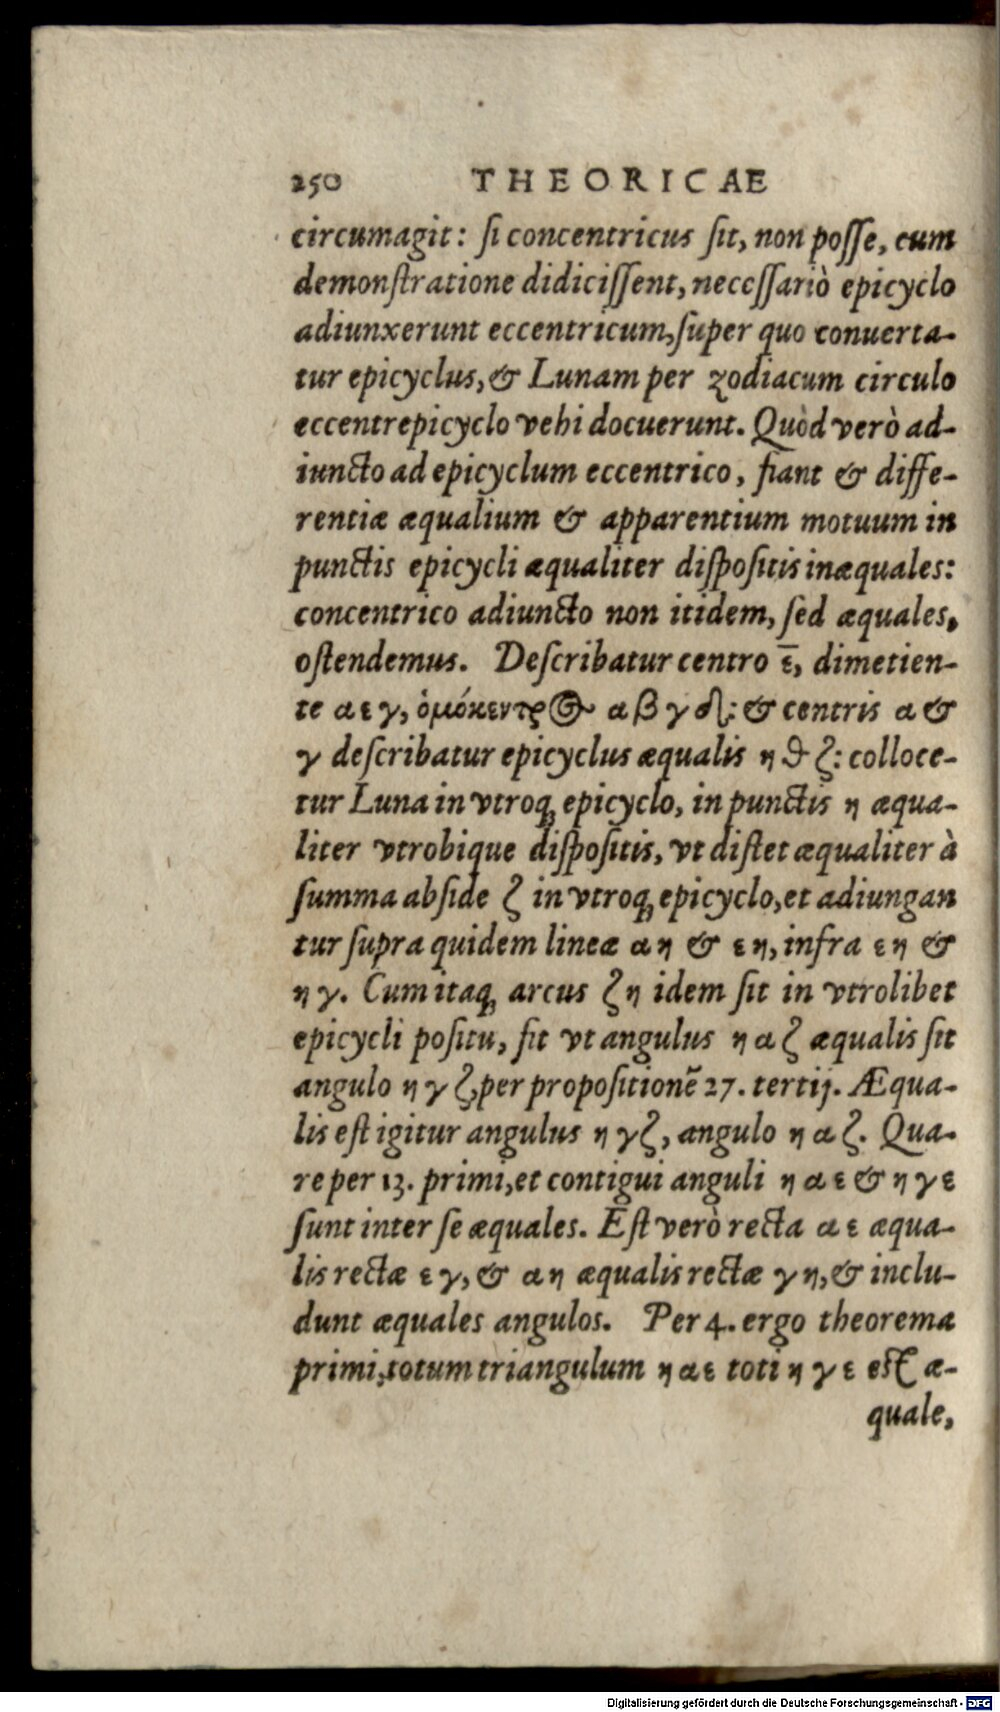 250 THEORICAE
circumagit: ſi concentricus ſit, non poſſe, cum
demonſtratione didiciſſent, neceſſariò epicyclo
adiunxerunt eccentricum, ſuper quo conuerta-
tur epicyclus, & Lunam per zodiacum circulo
eccentrepicyclo vehi docuerunt. Quòd verò ad-
iuncto ad epicyclum eccentrico, fiant & diffe-
rentiæ æqualium & apparentium motuum in
punctis epicycli æqualiter diſpoſitis inæquales:
concentrico adiuncto non itidem, ſed æquales,
oſtendemus. Deſcribatur centro ε̄, dimetien-
te α ε γ, ὁμόκεντρος α β γ δ: & centris α &
γ deſcribatur epicyclus æqualis η ϑ ζ: colloce-
tur Luna in vtroq; epicyclo, in punctis η æqua-
liter vtrobique diſpoſitis, vt diſtet æqualiter à
ſumma abſide ζ in vtroq; epicyclo, et adiungan
tur ſupra quidem lineæ α η & ε η, infra ε η &
η γ. Cum itaq; arcus ζ η idem ſit in vtrolibet
epicycli poſitu, fit vt angulus η α ζ æqualis ſit
angulo η γ ζ, per propoſitionē 27. tertij. Æqua-
lis eſt igitur angulus η γ ζ, angulo η α ζ. Qua-
re per 13. primi, et contigui anguli η α ε & η γ ε
ſunt inter ſe æquales. Eſt verò recta α ε æqua-
lis rectæ ε γ, & α η æqualis rectæ γ η, & inclu-
dunt æquales angulos. Per 4. ergo theorema
primi, totum triangulum η α ε toti η γ ε eſt æ-
quale,
Digitalisierung gefördert durch die Deutsche Forschungsgemeinschaft - DFG